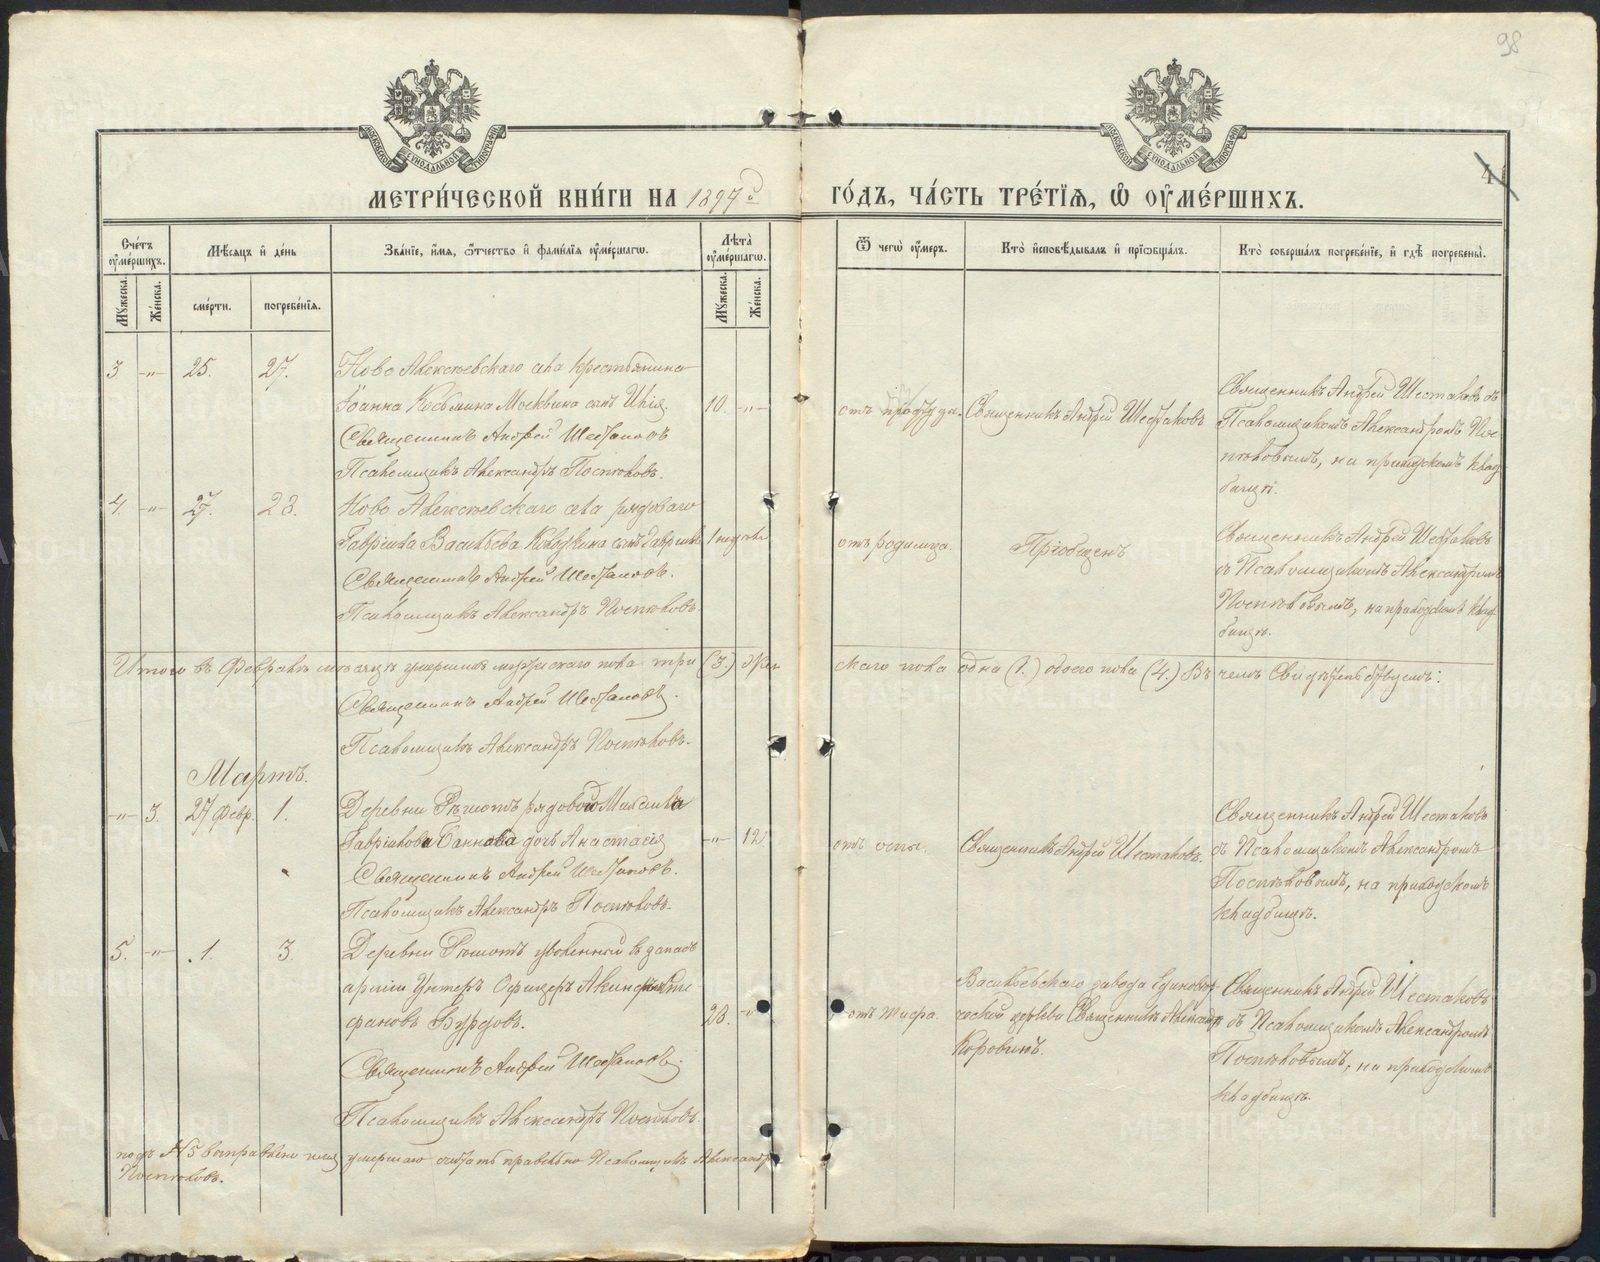 98
4
МЕТРИ́ЧЕСКОЙ КНИ́ГИ НА 1897 ГО́ДЪ, ЧА́СТЬ ТРЕ́ТІѦ, Ѡ ОУ҆МЕ́РШИХЪ.
Сче́тъ оу҆ме́ршихъ.
Мѣ́сяцъ и҆ де́нь
Зва́нїе, и҆́мя, ѻ҆́тчество и҆ фами́лїя оу҆ме́ршагѡ.
Лѣ́та оу҆ме́ршагѡ.
Ѿ чегѡ̀ оу҆́меръ.
Кто̀ и҆сповѣ́дывалъ и҆ прїѡбща́лъ.
Кто̀ соверша́лъ погребе́нїе, и҆ гдѣ̀ погребены̀.
Мꙋ́жеска.
Же́нска.
сме́рти.
погребе́нїя.
Мꙋ́жеска.
Же́нска.
3 -"- 25. 27. Ново Алексѣевскаго села крестьянина
Іоанна Косьмина Москвина сынъ Илія. 10. -"-
Священникъ Андрей Шестаковъ
Псаломщикъ Александръ Поспѣловъ.
отъ простуды. Священникъ Андрей Шестаковъ
Священникъ Андрей Шестаковъ съ
Псаломщикомъ Александромъ Пос-
пѣловымъ, на приходскомъ клад-
бищѣ.
4. -"- 27. 28. Ново Алексѣевскаго села рядоваго
Гавріила Васильева сынъ Гавріилъ 1 недѣли
Священникъ Андрей Шестаковъ.
Псаломщикъ Александръ Поспѣловъ.
отъ родимца. Пріобщенъ
Священникъ Андрей Шестаковъ
съ Псаломщикомъ Александромъ
Поспѣловымъ, на приходскомъ клад-
бищѣ.
Итого въ Февралѣ мѣсяцѣ умершихъ мужескаго пола три (3.) жен
скаго пола одна (1.) обоего пола (4.) Въ чемъ свидѣтельствуемъ:
Священникъ Андрей Шестаковъ.
Псаломщикъ Александръ Поспѣловъ.
Мартъ.
-"- 3. 27 Февр. 1. Деревни Рѣшотъ рядового Михаила
Гавріилова Баннова дочь Анастасія -"- 12
Священникъ Андрей Шестаковъ.
Псаломщикъ Александръ Поспѣловъ.
отъ оспы. Священникъ Андрей Шестаковъ.
Священникъ Андрей Шестаковъ
съ Псаломщикомъ Александромъ
Поспѣловымъ, на приходскомъ
кладбищѣ.
5. -"- 1. 3. Деревни Рѣшотъ уволенный въ запасъ
арміи Унтеръ Офицеръ Сте
фановъ Бурдовъ. 28. -"-
Священникъ Андрей Шестаковъ.
Псаломщикъ Александръ Поспѣловъ.
отъ тифа.
Васильевскаго завода Единовѣр-
ческой церкви Священникъ Александръ
Коровинъ.
Священникъ Андрей Шестаковъ
съ Псаломщикомъ Александромъ
Поспѣловымъ, на приходскомъ
кладбищѣ.
подъ №5 выправлено имя умершаго считать правильно Псаломщикъ Александръ
Поспѣловъ.